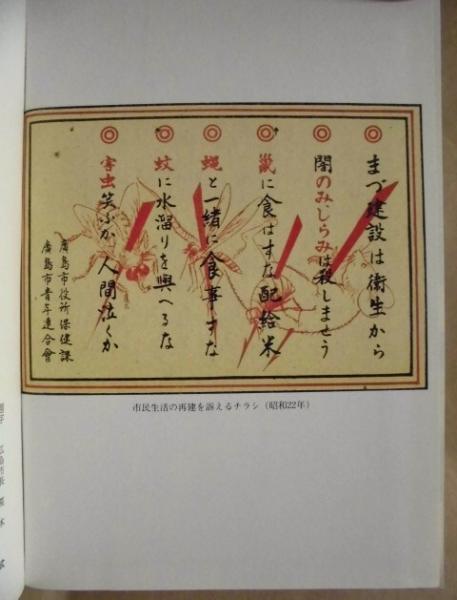 ◎まづ建設は衛生から
◎闇のみしらみは殺しませう
◎鼠に食はすな配給米
◎蝿と一緒に食事すな
◎蚊に水溜りを與へるな
◎害虫笑ふか人間泣くか
廣島市役所保健課
廣島市青年連合會
市民生活の再建を訴えるチラシ(昭和22年)